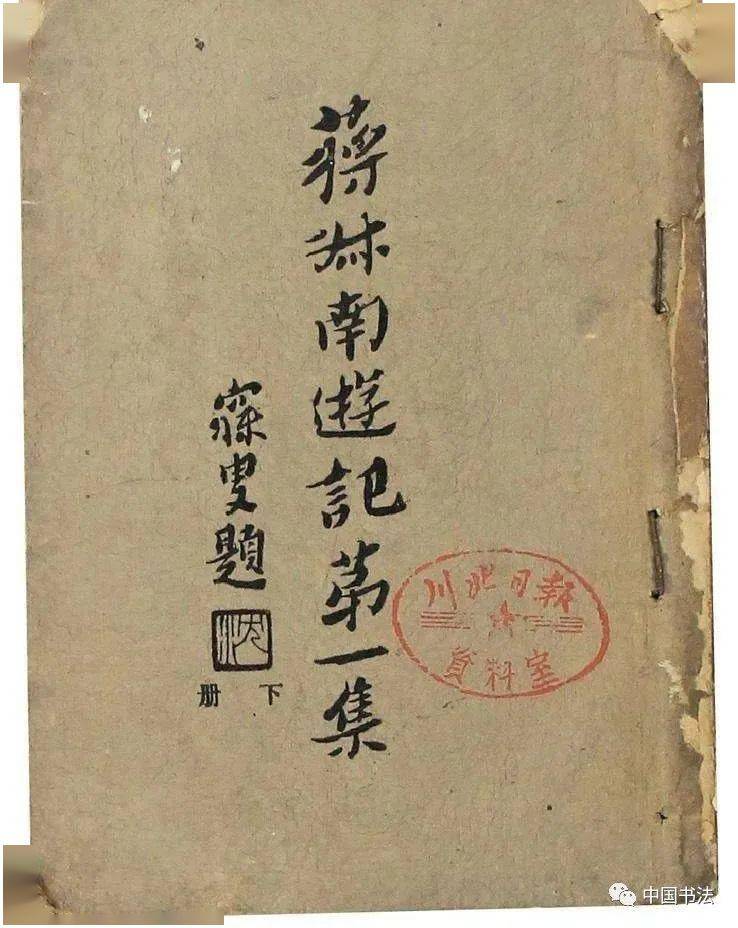 蒋尗南遊記第一集
寐叟題
沈
下册
川北日報
資料室
中国书法